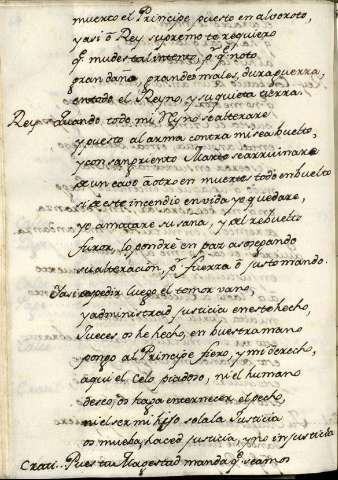 muerto el Principe puesto en alvoroto,
y asi ô Rey supremo te requiero
q.e mudes tal intento, p.r q.e noto
gran daño, grandes males, dura guerra,
en todo el Reyno, y su quieta tierra.
Rey. Quando todo mi Rno. se alterare
y puesto al arma contra mi sea buelto,
y con sangriento Marte se arruinare
de un cavo â otro en muerte todo embuelto
si de este incendio en vida yo quedare,
yo amatare su saña, y al rebuelto
furor, lo pondre en paz asosegando
su alteracion, p.r fuerza ô justo mando.
Y asi espedir luego el temor vano,
y administrad justicia en este hecho,
Jueces os he hecho, en buestra mano
pongo al Principe fiero, y mi derecho,
aqui el celo piadoso, ni el humano
deseo, os haga enternecer el pecho,
ni el ser mi hijo sola la Justicia
os mueba, haced justicia, y no injusticia
Crati.. Pues tu Magestad manda q.e seamos